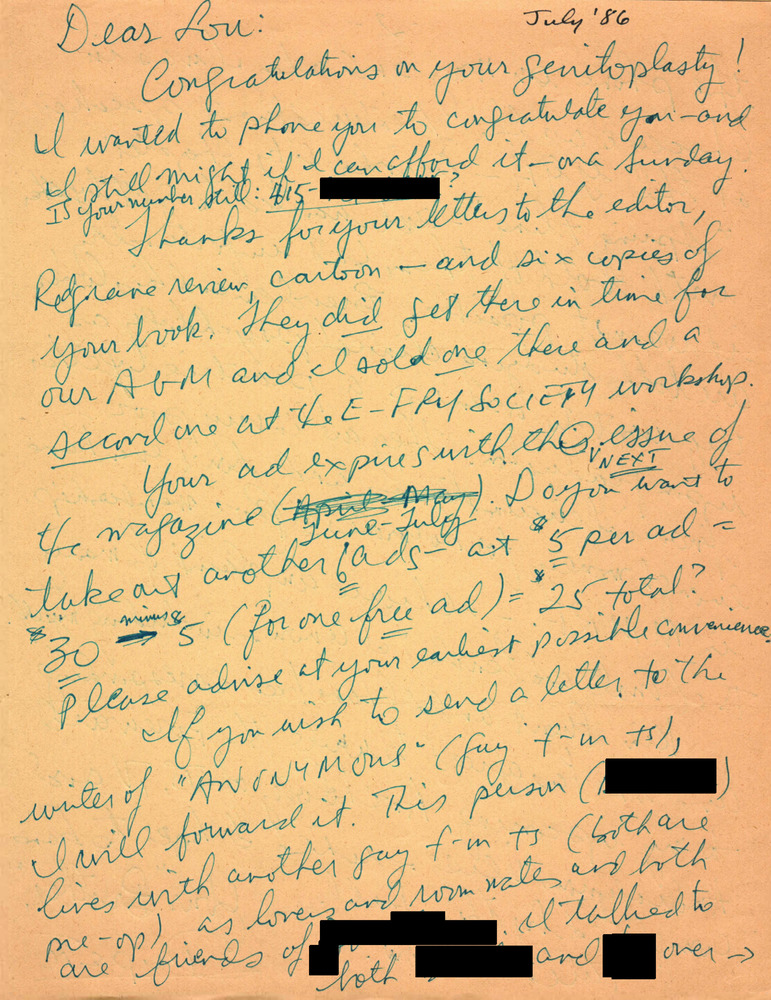 July '86
Dear Lou:
Congratulations on your genitoplasty!
I wanted to phone you to congratulate you—and
I still might if I can afford it—on a Sunday.
Is your number still: 415- ?
Thanks for your letters to the editor,
Redgrave review, cartoon — and six copies of
your book. They did get there in time for
our AGM and I sold one there and a
second one at the E-FRY SOCIETY workshop.
Your ad expires with the issue of
NEXT
the magazine (April-May). Do you want to
June-July
take out another 6 ads— at $5 per ad =
$30 minus $5 (for one free ad) = $25 total?
Please advise at your earliest possible convenience.
If you wish to send a letter to the
writer of "ANONYMOUS" (gay f-m ts),
I will forward it. This person ( )
lives with another gay f-m ts (both are
pre-op) as lovers and roommates and both
are friends of I talked to
both and over →